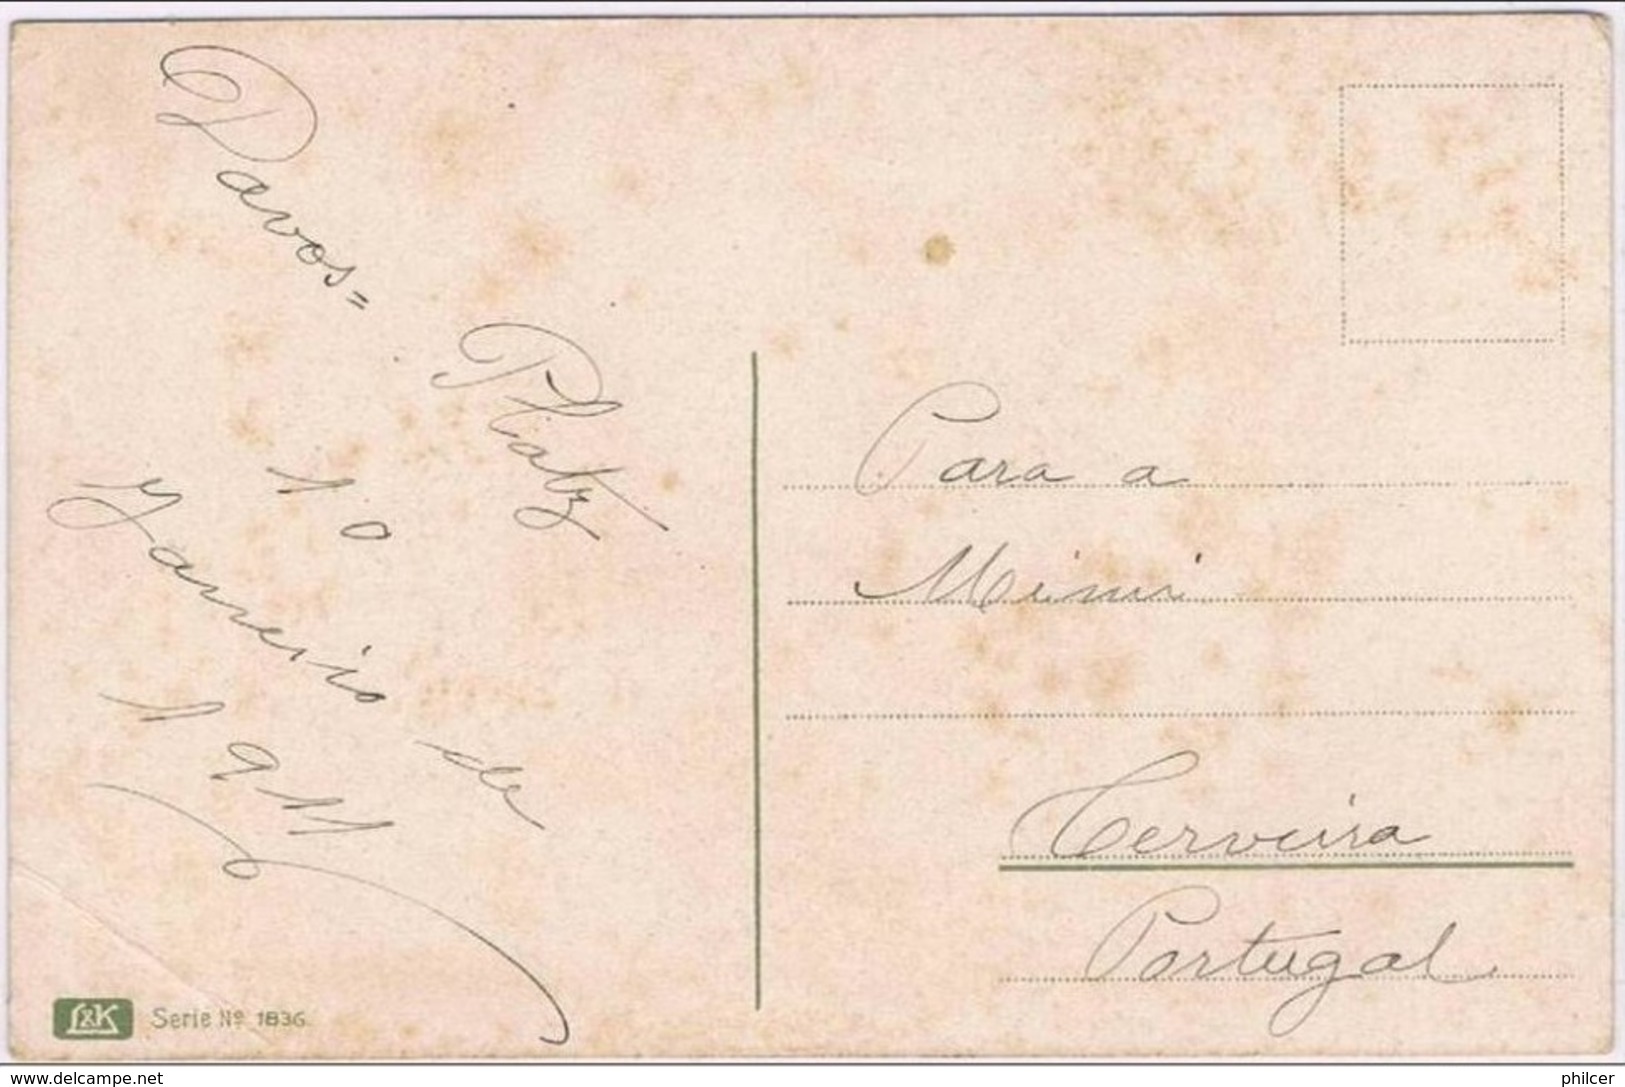 Davos=
Platz
10
Janneiro de
1911
Para a
Mimi
Cerveira
Portugal.
L&K Serie No 1836.
www.delcampe.net
philcer